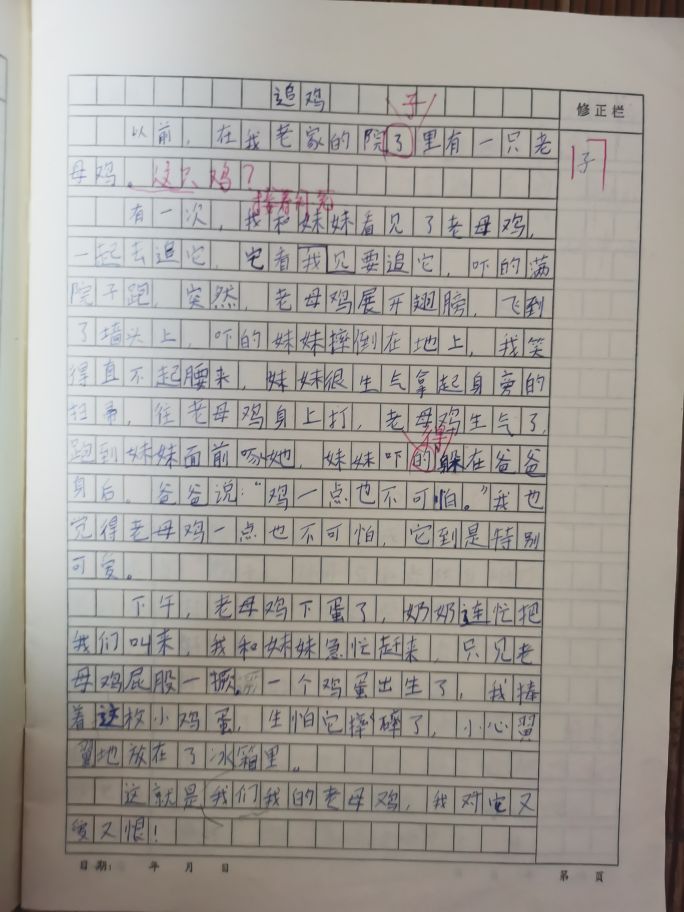 追鸡
子
修正栏
以前，在我老家的院了里有一只老
子
母鸡。这只鸡？
接着补充
有一次，我和妹妹看见了老母鸡，
一起去追它，它看我见要追它，吓的满
院子跑，突然，老母鸡展开翅膀，飞到
了墙头上，吓的妹妹摔倒在地上，我笑
得直不起腰来，妹妹很生气拿起身旁的
扫帚，往老母鸡身上打，老母鸡生气了，
得
跑到妹妹面前吻她，妹妹吓的躲在爸爸
身后。爸爸说：“鸡一点也不可怕。”我也
觉得老母鸡一点也不可怕，它到是特别
可爱。
下午，老母鸡下蛋了，奶奶连忙把
我们叫来，我和妹妹急忙赶来，只见老
母鸡屁股一撅，一个鸡蛋出生了，我捧
着这枚小鸡蛋，生怕它摔碎了，小心翼
翼地放在了冰箱里。
这就是我们我的老母鸡，我对它又
爱又恨！
日期： 年 月 日 第 页